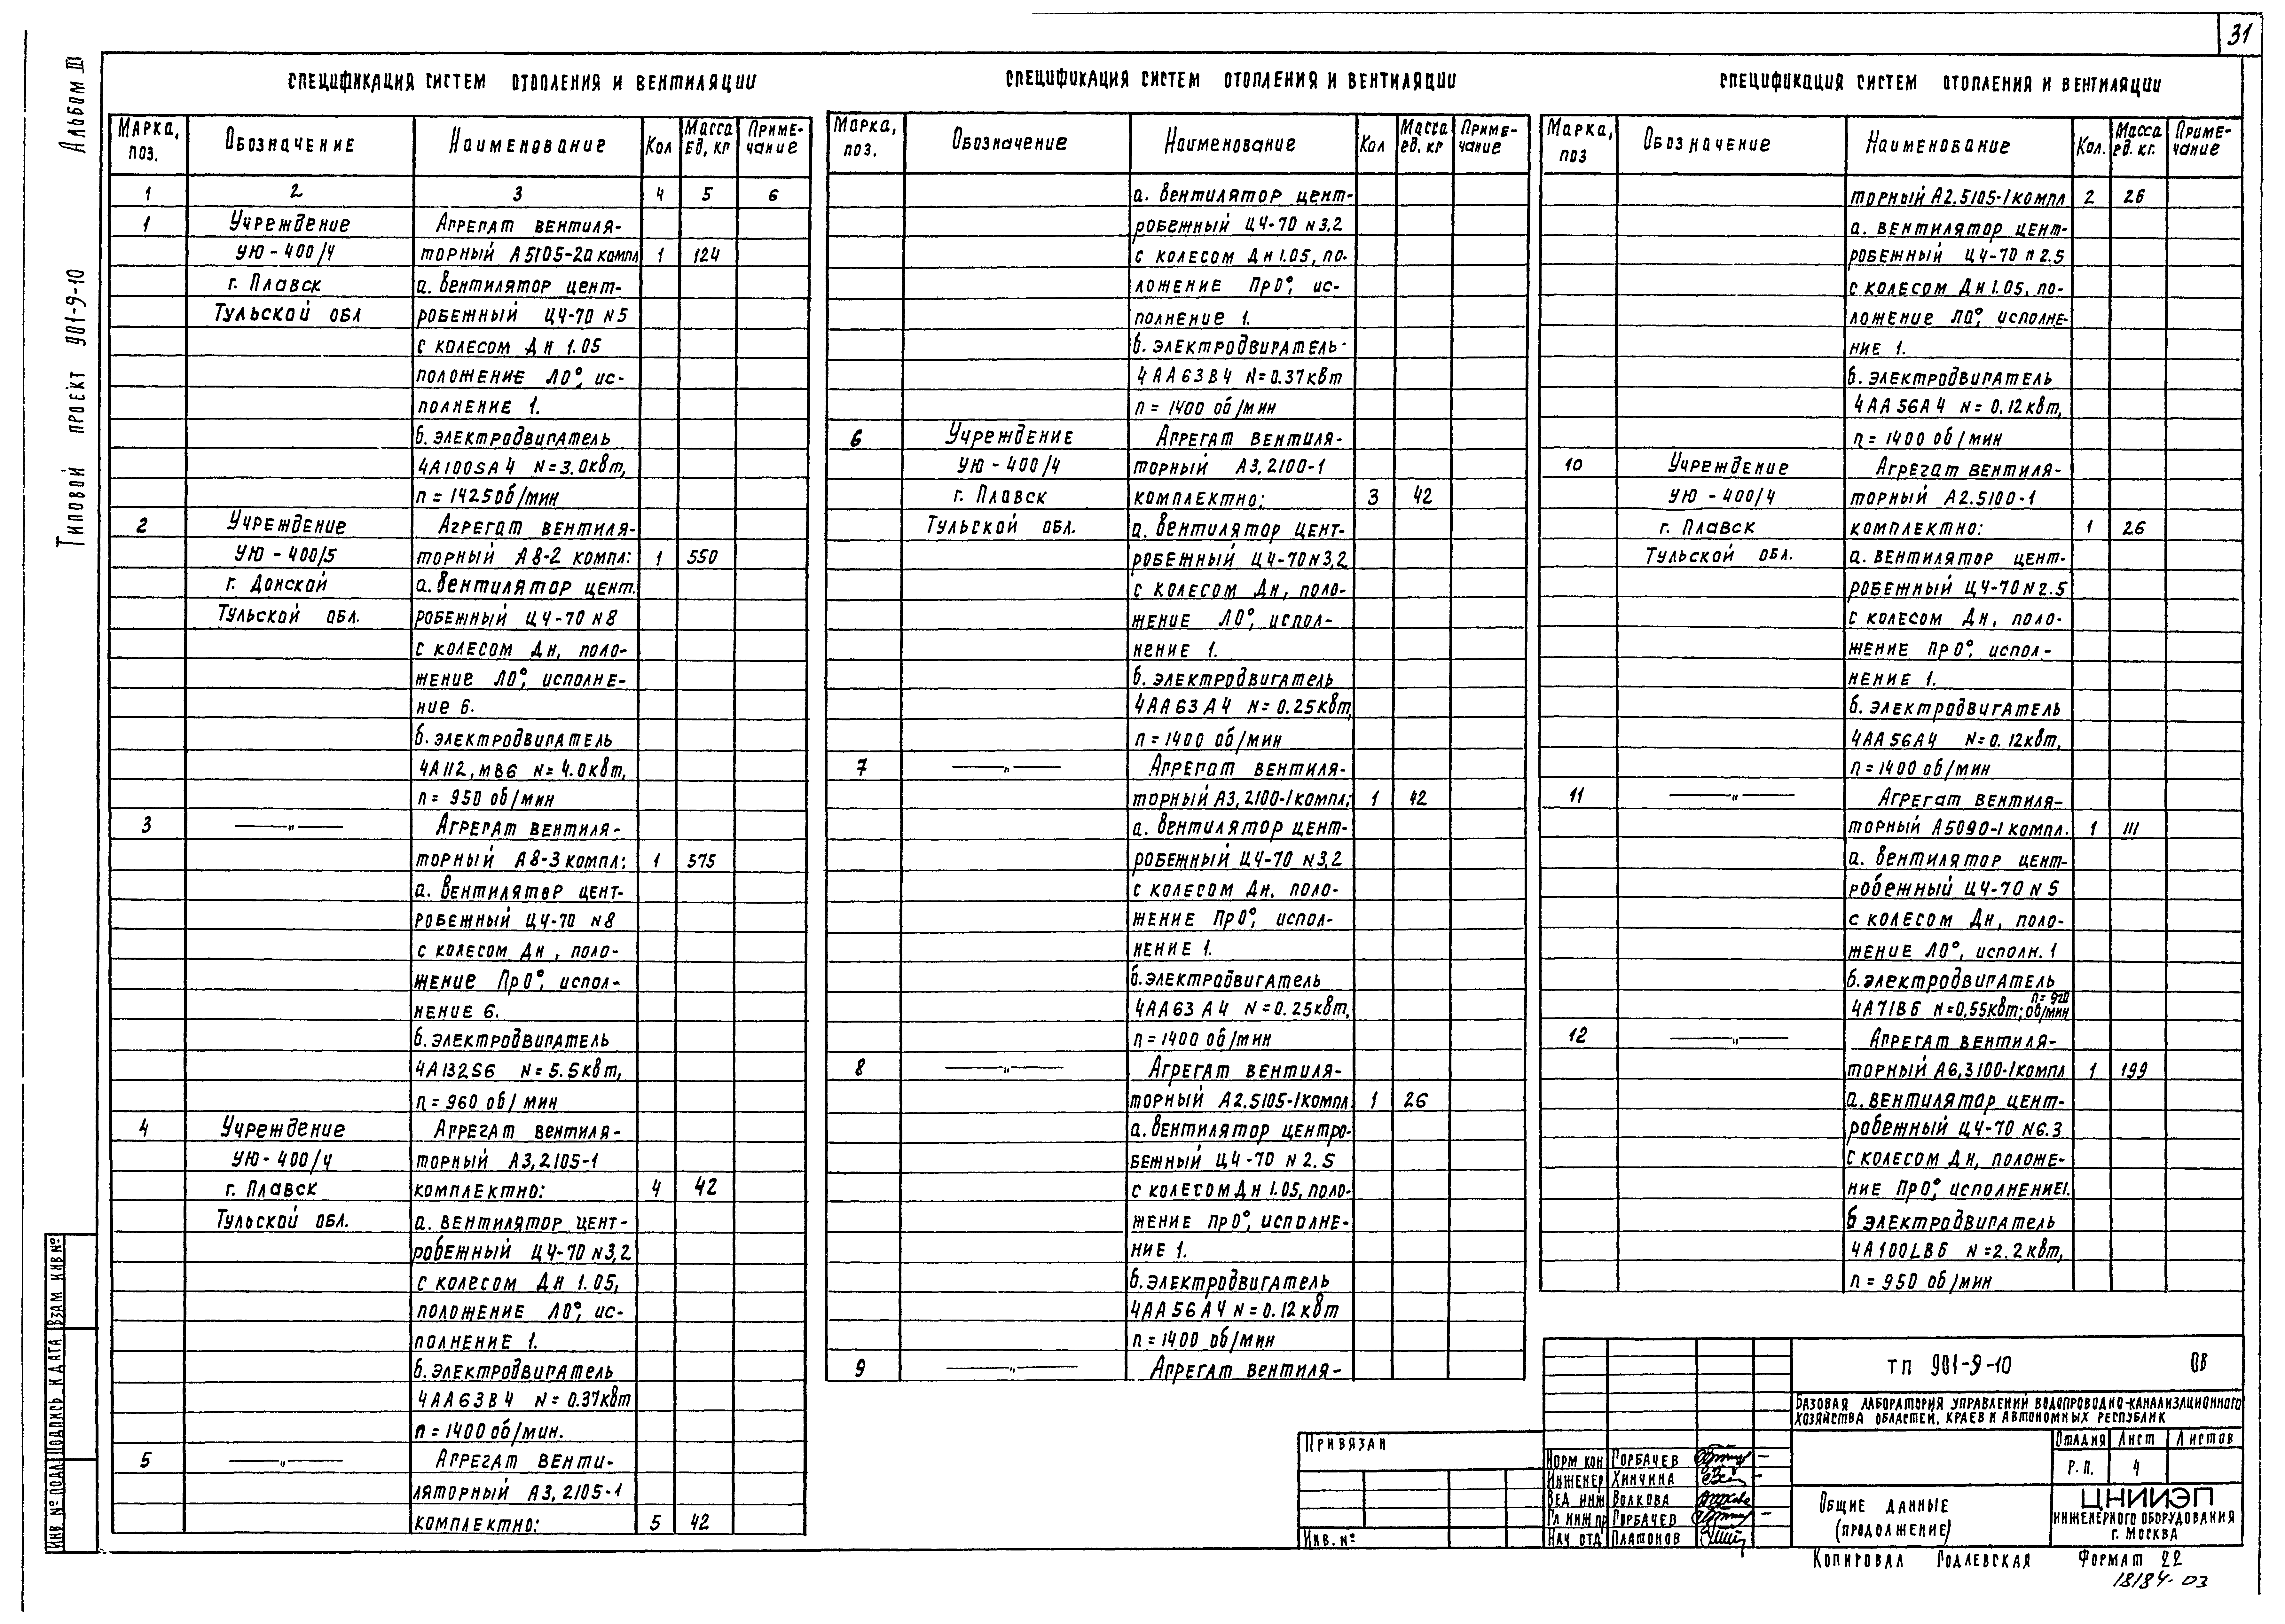 31
Альбом III
Типовой проект 901-9-10
Спецификация систем отопления и вентиляции
Марка, поз. Обозначение Наименование Кол Масса ед, кг Приме-чание
1 2 3 4 5 6
1 Учреждение Агрегат вентиля-
УЮ-400/4 торный А5105-2а компл 1 124
г. Плавск а. вентилятор цент-
Тульской обл робежный Ц4-70 N5
с колесом Дн 1.05
положение Л0°, ис-
полнение 1.
б. электродвигатель
4А100SA4 N=3.0квт,
n=1425об/мин
2 Учреждение Агрегат вентиля-
УЮ-400/5 торный А8-2 компл: 1 550
г. Донской а. вентилятор цент.
Тульской обл. робежный Ц4-70 N8
с колесом Дн, поло-
жение Л0°, исполне-
ние 6.
б. электродвигатель
4А112,МВ6 N=4.0квт,
n=950 об/мин
3 —"— Агрегат вентиля-
торный А8-3 компл: 1 575
а. вентилятор цент-
робежный Ц4-70 N8
с колесом Дн, поло-
жение Пр0°, испол-
нение 6.
б. электродвигатель
4А132S6 N=5.5квт,
n=960 об/мин
4 Учреждение Агрегат вентиля-
УЮ-400/4 торный А3,2105-1
г. Плавск комплектно: 4 42
Тульской обл. а. вентилятор цент-
робежный Ц4-70 N3,2
с колесом Дн 1.05,
положение Л0°, ис-
полнение 1.
б. электродвигатель
4АА63В4 N=0.37квт
n=1400 об/мин.
5 —"— Агрегат венти-
ляторный А3,2105-1
комплектно: 5 42
Спецификация систем отопления и вентиляции
Марка, поз. Обозначение Наименование Кол Масса ед. кг Приме-чание
а. вентилятор цент-
робежный Ц4-70 N3,2
с колесом Дн1.05, по-
ложение Пр0°, ис-
полнение 1.
б. электродвигатель-
4АА63В4 N=0.37квт
n=1400 об/мин
6 Учреждение Агрегат вентиля-
УЮ-400/4 торный А3,2100-1
г. Плавск комплектно: 3 42
Тульской обл. а. вентилятор цент-
робежный Ц4-70N3,2
с колесом Дн, поло-
жение Л0°, испол-
нение 1.
б. электродвигатель
4АА63А4 N=0.25квт,
n=1400 об/мин
7 —"— Агрегат вентиля-
торный А3,2100-1компл; 1 42
а. вентилятор цент-
робежный Ц4-70 N3,2
с колесом Дн. поло-
жение Пр0°, испол-
нение 1.
б. электродвигатель
4АА63А4 N=0.25квт,
n=1400 об/мин
8 —"— Агрегат вентиля-
торный А2.5105-1компл. 1 26
а. вентилятор центро-
бежный Ц4-70 N2.5
с колетом Дн 1.05, поло-
жение пр0°, исполне-
ние 1.
б. электродвигатель
4АА56А4 N=0.12квт
n=1400 об/мин
9 —"— Агрегат вентиля-
Спецификация систем отопления и вентиляции
Марка, поз Обозначение Наименование Кол. Масса ед. кг. Приме-чание
торный А2.5105-1компл 2 26
а. вентилятор цент-
робежный Ц4-70 N2.5
с колесом Дн1.05, по-
ложение Л0°, исполне-
ние 1.
б. электродвигатель
4АА56А4 N=0.12квт,
n=1400 об/мин
10 Учреждение Агрегат вентиля-
УЮ-400/4 торный А2.5100-1
г. Плавск комплектно: 1 26
Тульской обл. а. вентилятор цент-
робежный Ц4-70N2.5
с колесом Дн, поло-
жение Пр0°, испол-
нение 1.
б. электродвигатель
4АА56А4 N=0.12квт,
n=1400 об/мин
11 —"— Агрегат вентиля-
торный А5090-1 компл. 1 111
а. вентилятор цент-
робежный Ц4-70 N5
с колесом Дн, поло-
жение Л0°, исполн. 1
б. электродвигатель
4А71В6 N=0,55квт; n=920 об/мин
12 —"— Агрегат вентиля-
торный А6,3100-1компл 1 199
а. вентилятор цент-
робежный Ц4-70 N6.3
с колесом Дн, положе-
ние Пр0°, исполнение1.
б электродвигатель
4А100LВ6 N=2.2квт,
n=950 об/мин
Привязан
Инв. №
ТП 901-9-10 ОВ
Базовая лаборатория управлений водопроводно-канализационного
хозяйства областей, краев и автономных республик
Стадия Лист Листов
Р.П. 4
Норм кон Горбачев
Инженер Хинчина
Вед инж Волкова
Гл инж пр Горбачев
Нач отд Платонов
Общие данные
(продолжение)
ЦНИИЭП
инженерного оборудования
г. Москва
Копировал Подлевская Формат 22
18184-03
Инв № подл Подпись и дата Взам инв №